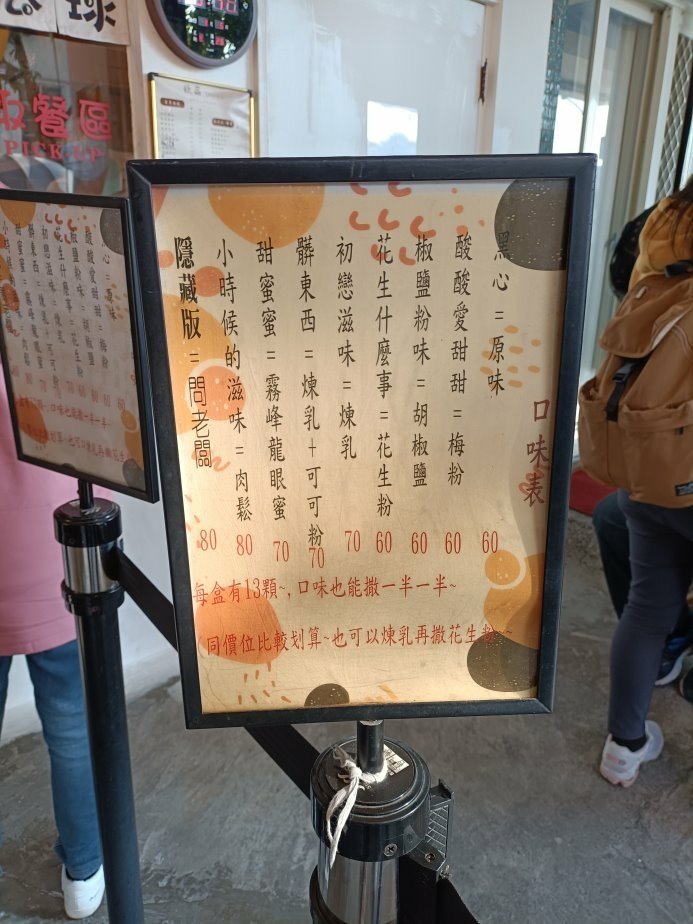 球
取餐區
PICK UP
口味表
黑心=原味 60
酸酸愛甜甜=梅粉 60
椒鹽粉味=胡椒鹽 60
花生什麼事=花生粉 60
初戀滋味=煉乳 70
髒東西=煉乳+可可粉 70
甜蜜蜜=霧峰龍眼蜜 70
小時候的滋味=肉鬆 80
隱藏版=問老闆 80
每盒有13顆~,口味也能撒一半一半~
同價位比較划算~也可以煉乳再撒花生粉~~